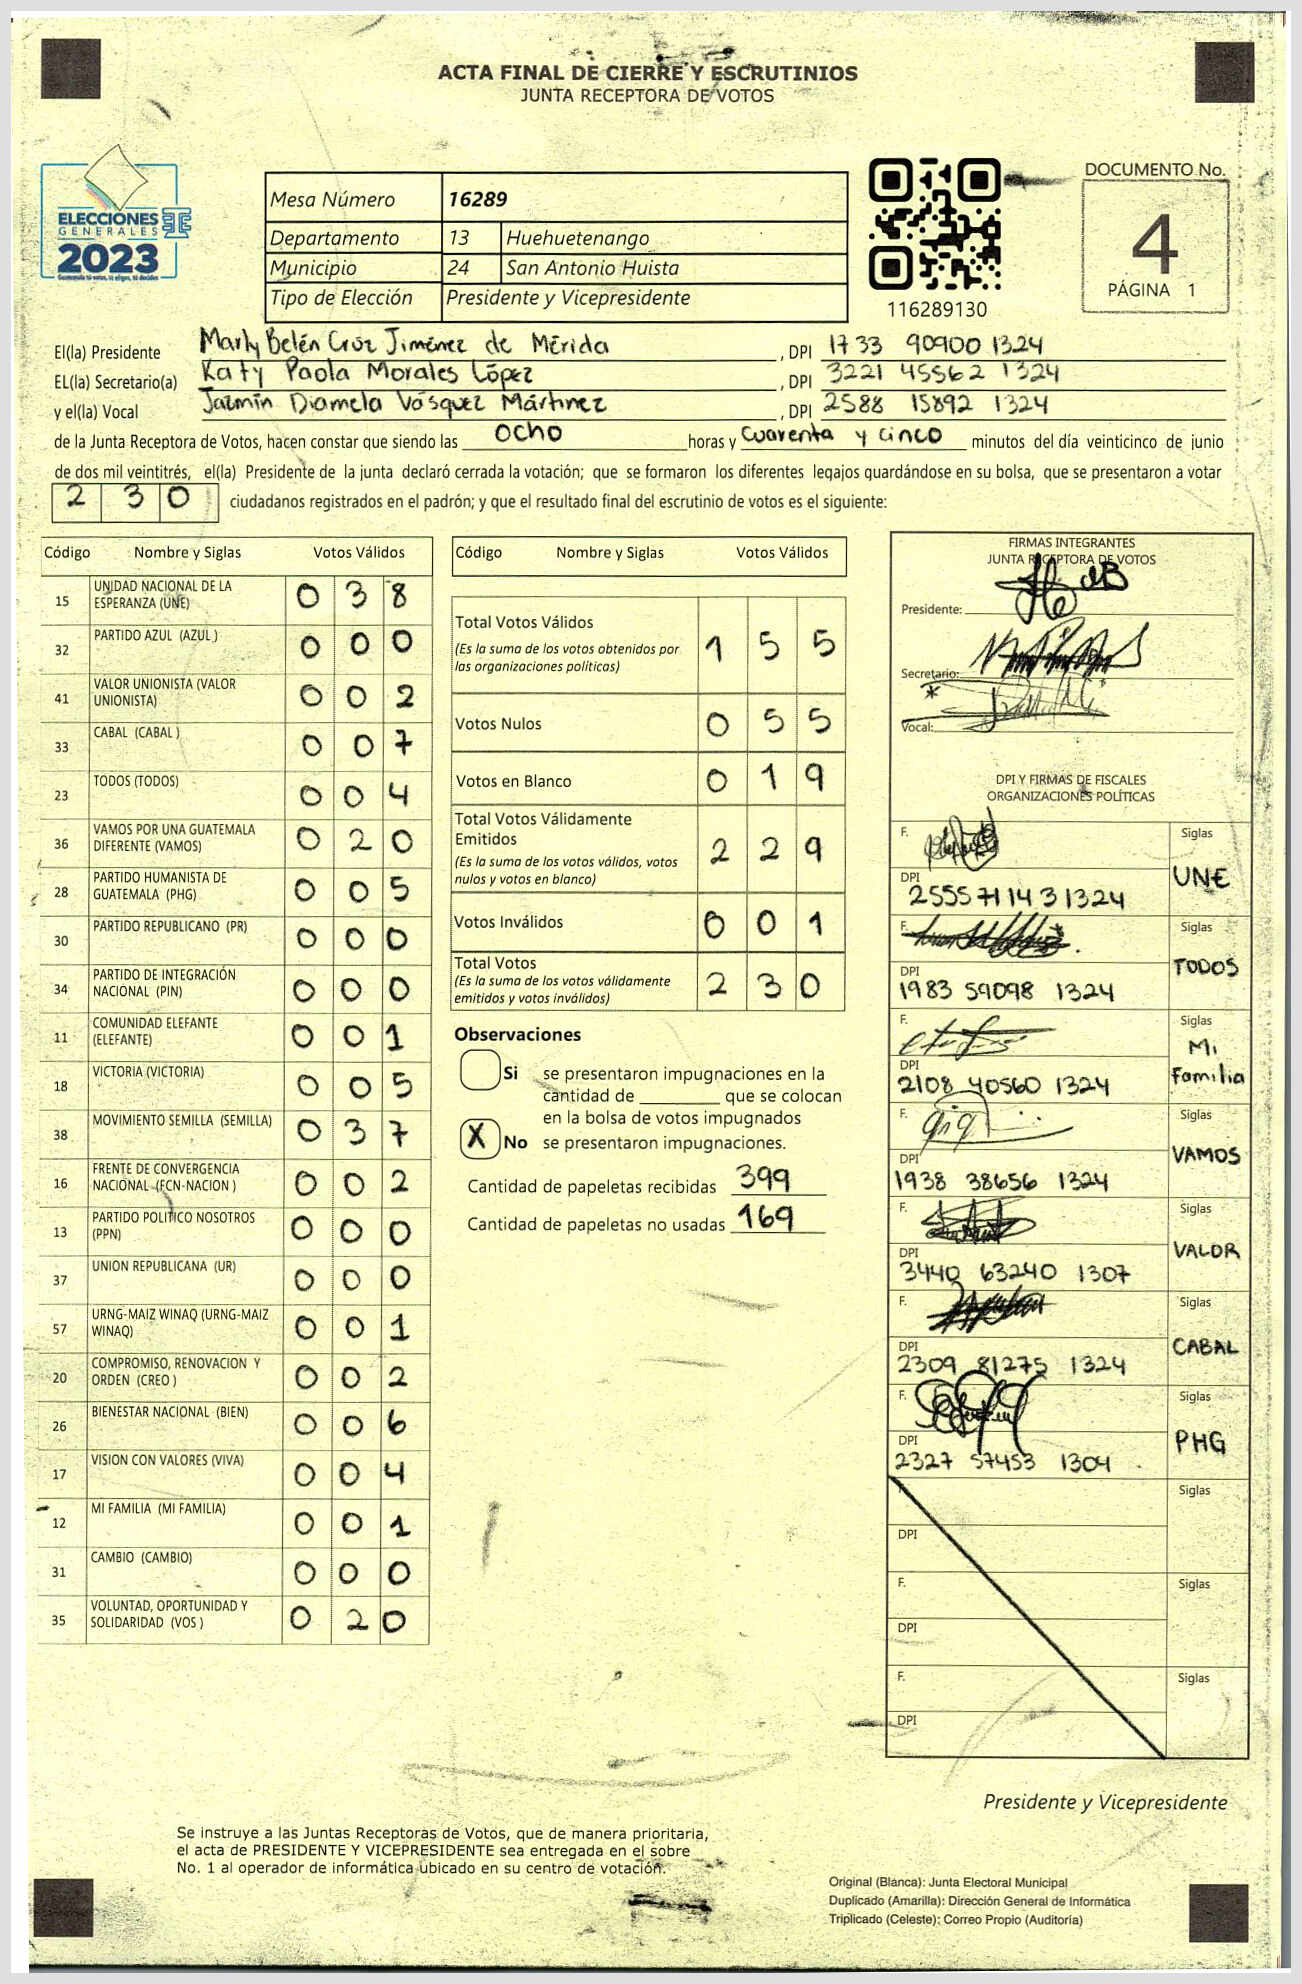 ACTA FINAL DE CIERRE Y ESCRUTINIOS
JUNTA RECEPTORA DE VOTOS
ELECCIONES
GENERALES
2023
Mesa Número 16289
Departamento 13 Huehuetenango
Municipio 24 San Antonio Huista
Tipo de Elección Presidente y Vicepresidente
116289130
DOCUMENTO No.
4
PÁGINA 1
El(la) Presidente Marly Belén Cruz Jiménez de Mérida, DPI 1733 90900 1324
EL(la) Secretario(a) Katy Paola Morales López, DPI 3221 45562 1324
y el(la) Vocal Jazmín Diamela Vásquez Mártinez, DPI 2588 15892 1324
de la Junta Receptora de Votos, hacen constar que siendo las ocho horas y cuarenta y cinco minutos del día veinticinco de junio
de dos mil veintitrés, el(la) Presidente de la junta declaró cerrada la votación; que se formaron los diferentes legajos guardándose en su bolsa, que se presentaron a votar
230 ciudadanos registrados en el padrón; y que el resultado final del escrutinio de votos es el siguiente:
Código Nombre y Siglas Votos Válidos
15 UNIDAD NACIONAL DE LA ESPERANZA (UNE) 038
32 PARTIDO AZUL (AZUL) 000
41 VALOR UNIONISTA (VALOR UNIONISTA) 002
33 CABAL (CABAL) 007
23 TODOS (TODOS) 004
36 VAMOS POR UNA GUATEMALA DIFERENTE (VAMOS) 020
28 PARTIDO HUMANISTA DE GUATEMALA (PHG) 005
30 PARTIDO REPUBLICANO (PR) 000
34 PARTIDO DE INTEGRACIÓN NACIONAL (PIN) 000
11 COMUNIDAD ELEFANTE (ELEFANTE) 001
18 VICTORIA (VICTORIA) 005
38 MOVIMIENTO SEMILLA (SEMILLA) 037
16 FRENTE DE CONVERGENCIA NACIONAL (FCN-NACION) 002
13 PARTIDO POLITICO NOSOTROS (PPN) 000
37 UNION REPUBLICANA (UR) 000
57 URNG-MAIZ WINAQ (URNG-MAIZ WINAQ) 001
20 COMPROMISO, RENOVACION Y ORDEN (CREO) 002
26 BIENESTAR NACIONAL (BIEN) 006
17 VISION CON VALORES (VIVA) 004
12 MI FAMILIA (MI FAMILIA) 001
31 CAMBIO (CAMBIO) 000
35 VOLUNTAD, OPORTUNIDAD Y SOLIDARIDAD (VOS) 020
Código Nombre y Siglas Votos Válidos
Total Votos Válidos 155
(Es la suma de los votos obtenidos por
las organizaciones políticas)
Votos Nulos 055
Votos en Blanco 019
Total Votos Válidamente
Emitidos 229
(Es la suma de los votos válidos, votos
nulos y votos en blanco)
Votos Inválidos 001
Total Votos 230
(Es la suma de los votos válidamente
emitidos y votos inválidos)
Observaciones
Si se presentaron impugnaciones en la
cantidad de ________ que se colocan
en la bolsa de votos impugnados
X No se presentaron impugnaciones.
Cantidad de papeletas recibidas 399
Cantidad de papeletas no usadas 169
FIRMAS INTEGRANTES
JUNTA RECEPTORA DE VOTOS
Presidente:
Secretario:
Vocal:
DPI Y FIRMAS DE FISCALES
ORGANIZACIONES POLÍTICAS
F. Siglas UNE
DPI 2555 71143 1324
F. Siglas TODOS
DPI 1983 59098 1324
F. Siglas Mi Familia
DPI 2108 40560 1324
F. Siglas VAMOS
DPI 1938 38656 1324
F. Siglas VALOR
DPI 3440 63240 1307
F. Siglas CABAL
DPI 2309 81275 1324
F. Siglas PHG
DPI 2327 57453 1304
F. Siglas
DPI
F. Siglas
DPI
F. Siglas
DPI
Presidente y Vicepresidente
Se instruye a las Juntas Receptoras de Votos, que de manera prioritaria,
el acta de PRESIDENTE Y VICEPRESIDENTE sea entregada en el sobre
No. 1 al operador de informática ubicado en su centro de votación.
Original (Blanca): Junta Electoral Municipal
Duplicado (Amarilla): Dirección General de Informática
Triplicado (Celeste): Correo Propio (Auditoría)